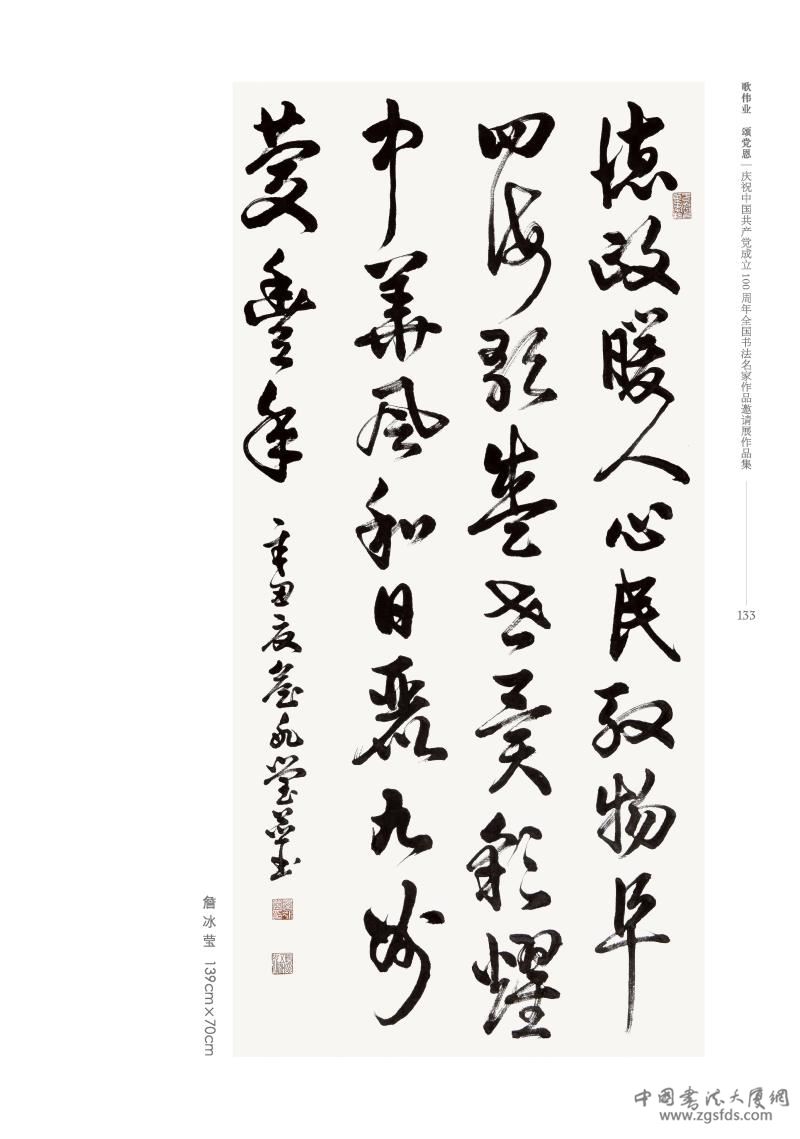 歌伟业 颂党恩 | 庆祝中国共产党成立100周年全国书法名家作品邀请展作品集
133
德政暖人心民殷物阜
四海歌盛世異彩耀
中華風和日麗九州
慶豐年
辛丑夏詹冰瑩書
詹冰莹 139cm×70cm
中国书法大厦網
www.zgsfds.com